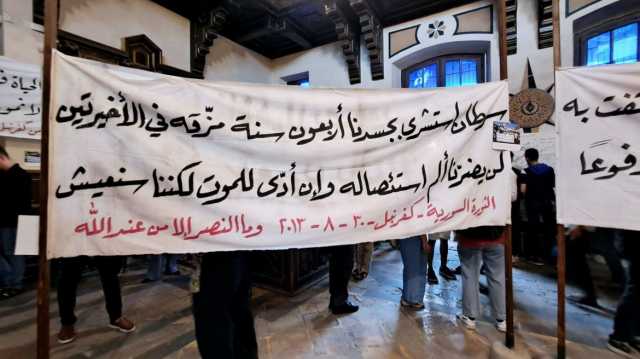 سرطان استشرى بجسدنا أربعون سنة مزّقه في الأخيرتين
لن يضرنا ألم استئصاله وإن أدّى للموت لكننا سنعيش
الثورة السورية - كفرنبل - ٣٠ - ٨ - ٢٠١٣ وما النصر إلا من عند الله
الحياة
تفت به
فوعاً